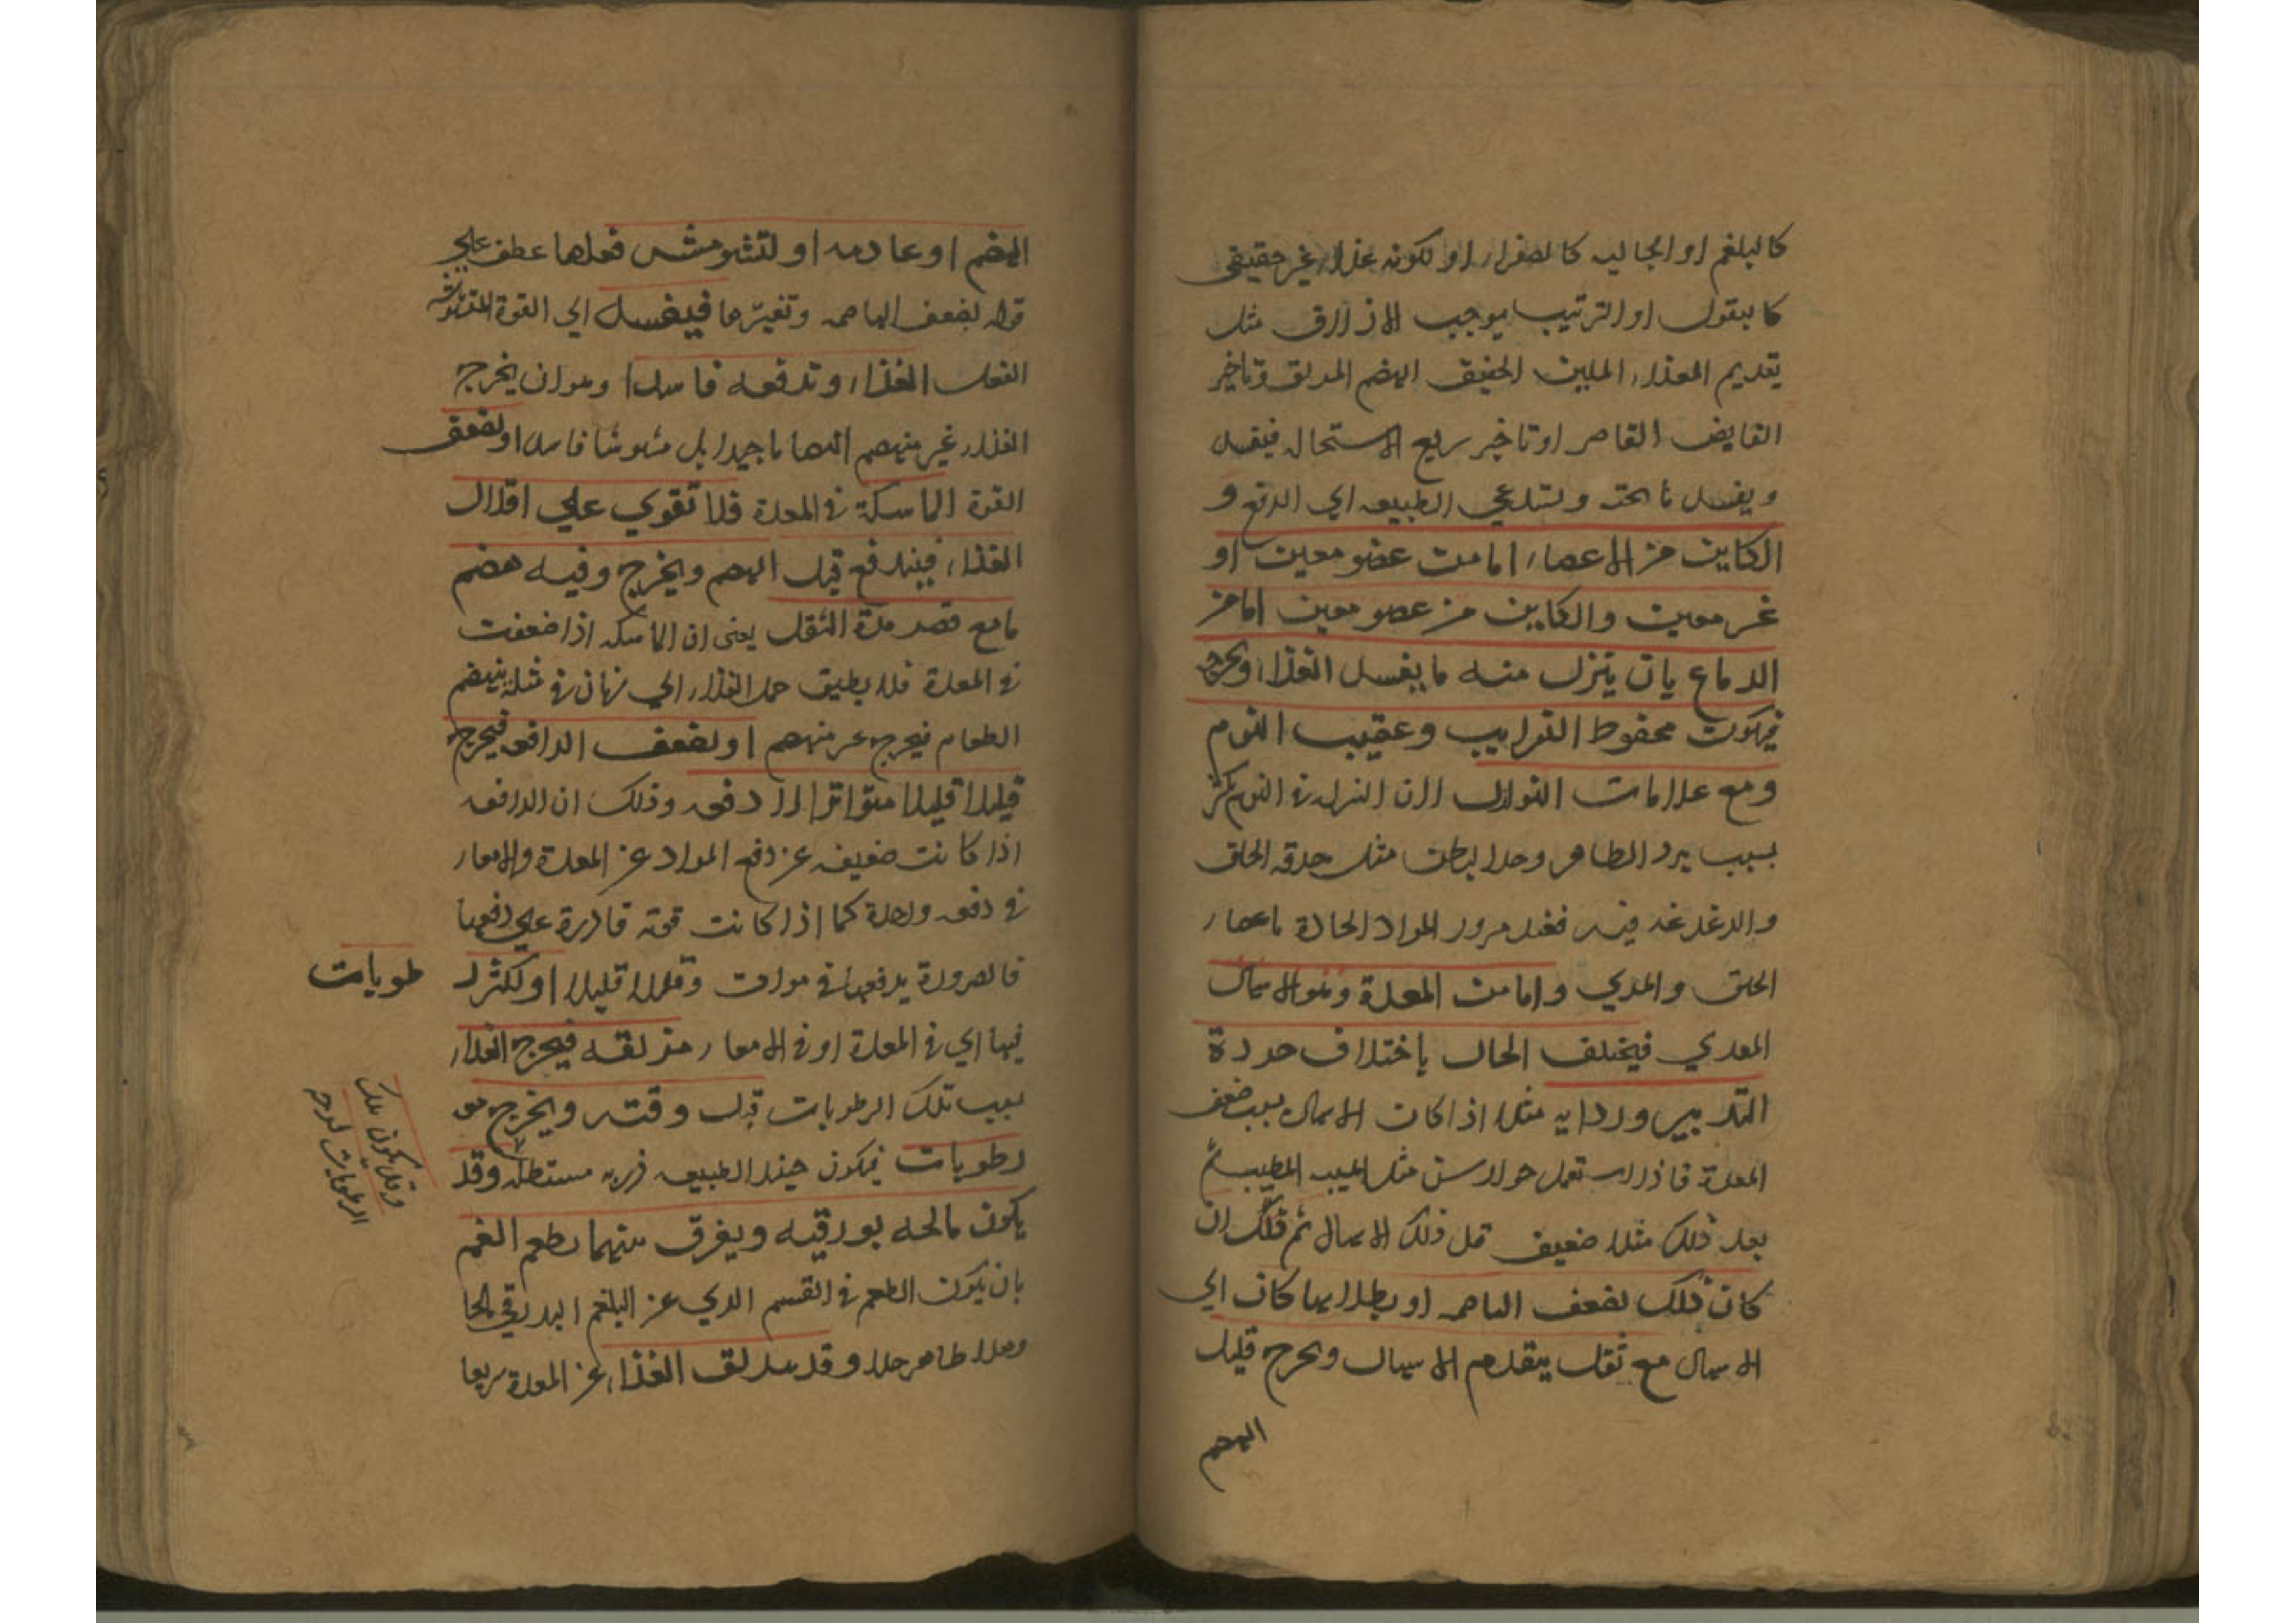 كالبلغم او الجاليه كالصفرا، او لكونه غذاء غير حقيقى
كا لبقول او الترتيب يوجب الازلاق مثل
تقديم الغذا، الملين الخفيف الهضم المزلق وتاخير
القابض القاصر او تاخير سريع الاستحاله فيفسد
ويفسد ما تحته ويستدعي الطبيعه الي الدفع و
الكاين من الاعصا، اما من عضو معين او
غير معين والكاين من عضو معين اما من
الدماغ بان ينزل منه ما يفسد الغذاء ويخرجه
فيكون محفوظ النوايب وعقيب النوم
ومع علامات النوازل الان النزله في النوم يكثر
بسبب برد الظاهر وحر الباطن مثل حرقه الحلق
والدغدغه فيه فعند مرور المواد الحادة باعصا،
الحلق والمري واما من المعدة وهو الاسهال
المعدي فيختلف الحال باختلاف جودة
التدبير ورداية مثلا اذا كان الاسهال بسبب ضعف
المعدة فاذا استعمل جوارسن مثل الحبيب المطيب ثم
بعد ذلك مثلا ضعيف قبل ذلك الاسهال ثم ذلك ان
كان ذلك لضعف الهاضمه او بطلانها كان اي
الاسهال مع ثقل يتقدم الاسهال ويخرج قليل
الهضم
الهضم او عادمه او لتشويش فعلها عطف علي
قوله لضعف الهاضمه وتغيرها فيفسد اي القوة المشوشه
الفعل الغذا، وتدفعه فاسدا وهو ان يخرج
الغذا، غير منهضم انهضاما جيدا بل مشوشا فاسدا او لضعف
القوة الماسكة في المعدة فلا تقوي علي اقلال
الغذا، فيندفع قبل الهضم ويخرج وفيه هضم
ما مع قصر مدة الثقل يعنى ان الماسكه اذا ضعفت
في المعدة فلا يطيق حمل الغذا، الي زمان في مثله ينهضم
الطعام فيخرج غير منهضم او لضعف الدافعه فيخرج
قليلا قليلا متواترا الا دفعه وذلك ان الدافعه
اذا كانت ضعيفه عن دفع المواد عن المعدة والامعا،
في دفعه واحدة كما اذا كانت قوته قادرة علي دفعها
فالضرورة يدفعها في مرات وقليلا قليلا او لكثرة
طوبات
فيها اي في المعدة او في الامعا، مزلقه فيخرج الغذا،
بسبب تلك الرطوبات قبل وقته ويخرج معه
رطوبات فيكون حينئذ الطبيعه مستطلقه وقد
وقد يكون تلك
الرطوبات لزجه
يكون مالحه بورقيه ويفرق بينهما بطعم الفم
بان يكون الطعم في القسم الذي عن البلغم البورقي مالحا
وهذا ظاهر جدا وقد يزلق الغذا، عن المعدة سريعا